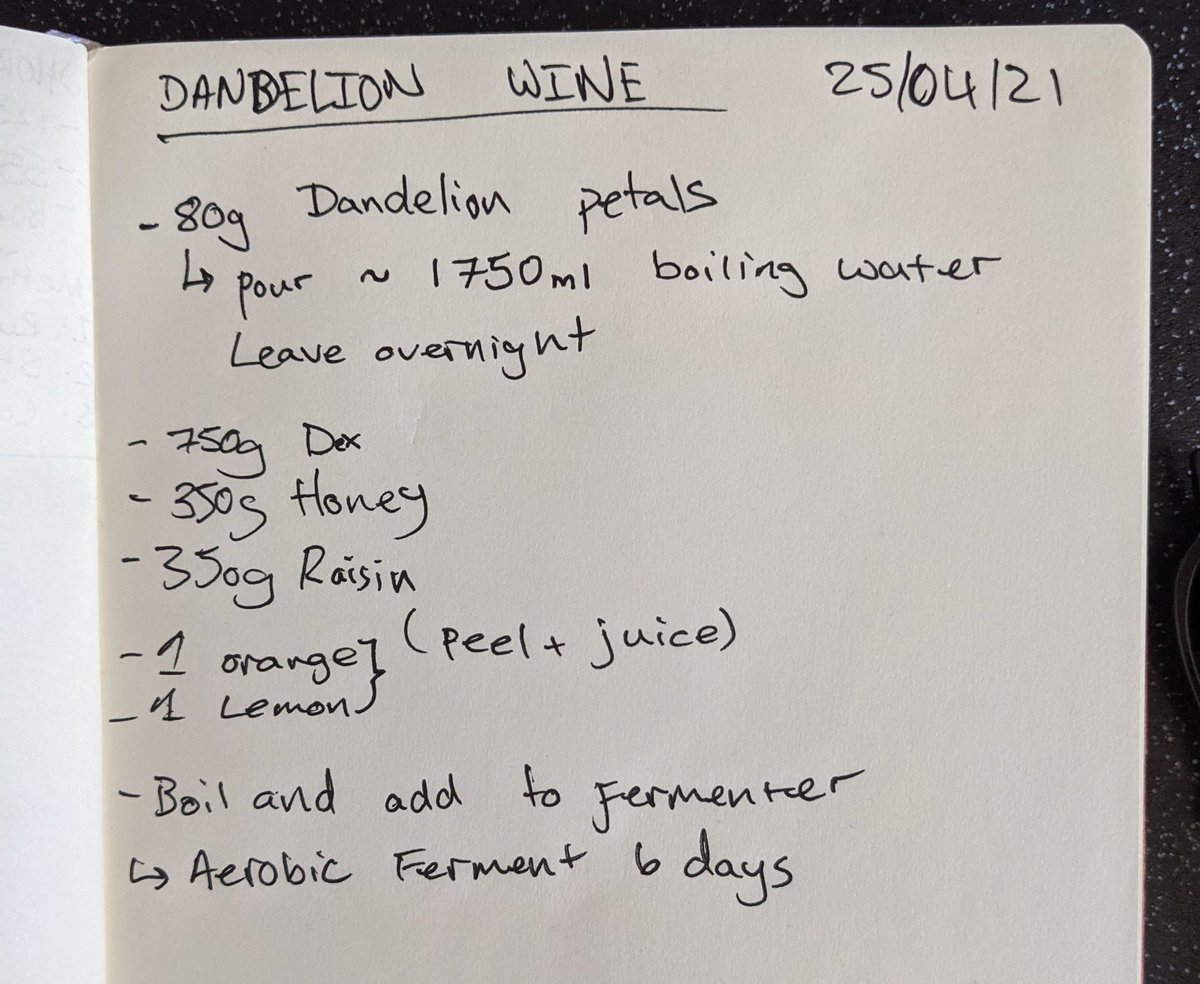 DANDELION WINE 25/04/21
- 80g Dandelion petals
↳ pour ~ 1750ml boiling water
Leave overnight
- 750g Dex
- 350g Honey
- 350g Raisin
- 1 orange } (peel + juice)
- 1 Lemon
- Boil and add to fermenter
↳ Aerobic Ferment 6 days